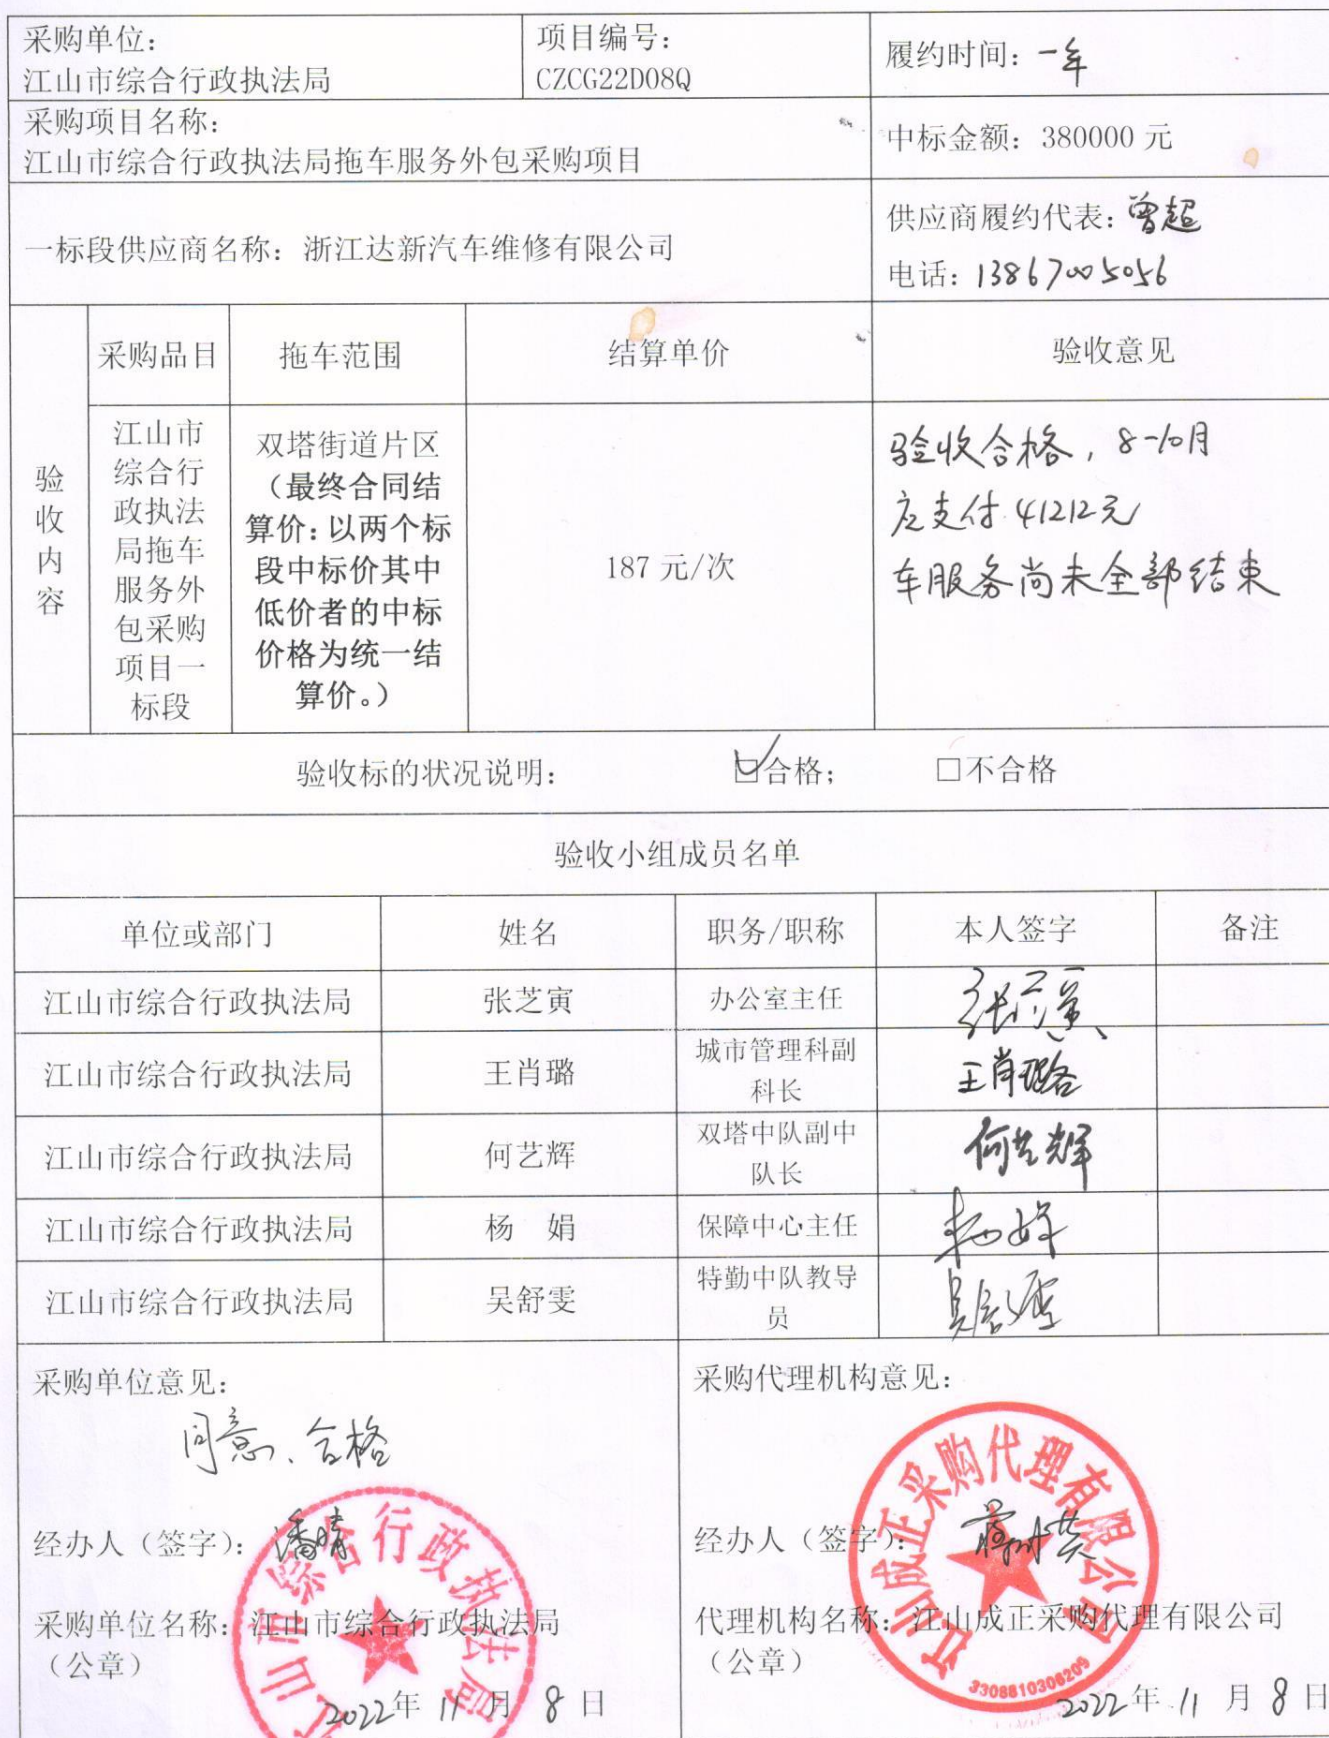 采购单位：
江山市综合行政执法局
项目编号：
CZCG22D08Q
履约时间：一年
采购项目名称：
江山市综合行政执法局拖车服务外包采购项目
中标金额：380000 元
一标段供应商名称：浙江达新汽车维修有限公司
供应商履约代表：曾超
电话：13867005056
验收内容
采购品目
拖车范围
结算单价
验收意见
江山市
综合行
政执法
局拖车
服务外
包采购
项目一
标段
双塔街道片区
（最终合同结
算价：以两个标
段中标价其中
低价者的中标
价格为统一结
算价。）
187 元/次
验收合格，8-10月
应支付 41212元
车服务尚未全部结束
验收标的状况说明： ☑合格； □不合格
验收小组成员名单
单位或部门 姓名 职务/职称 本人签字 备注
江山市综合行政执法局 张芝寅 办公室主任 张芝寅
江山市综合行政执法局 王肖璐 城市管理科副
科长 王肖璐
江山市综合行政执法局 何艺辉 双塔中队副中
队长 何艺辉
江山市综合行政执法局 杨 娟 保障中心主任 杨娟
江山市综合行政执法局 吴舒雯 特勤中队教导
员 吴舒雯
采购单位意见：
同意、合格
经办人（签字）：潘晴
采购单位名称：江山市综合行政执法局
（公章）
2022年 11 月 8 日
江山市综合行政执法局
采购代理机构意见：
经办人（签字）：
代理机构名称：江山成正采购代理有限公司
（公章）
2022年 11 月 8 日
江山成正采购代理有限公司
3308810306209